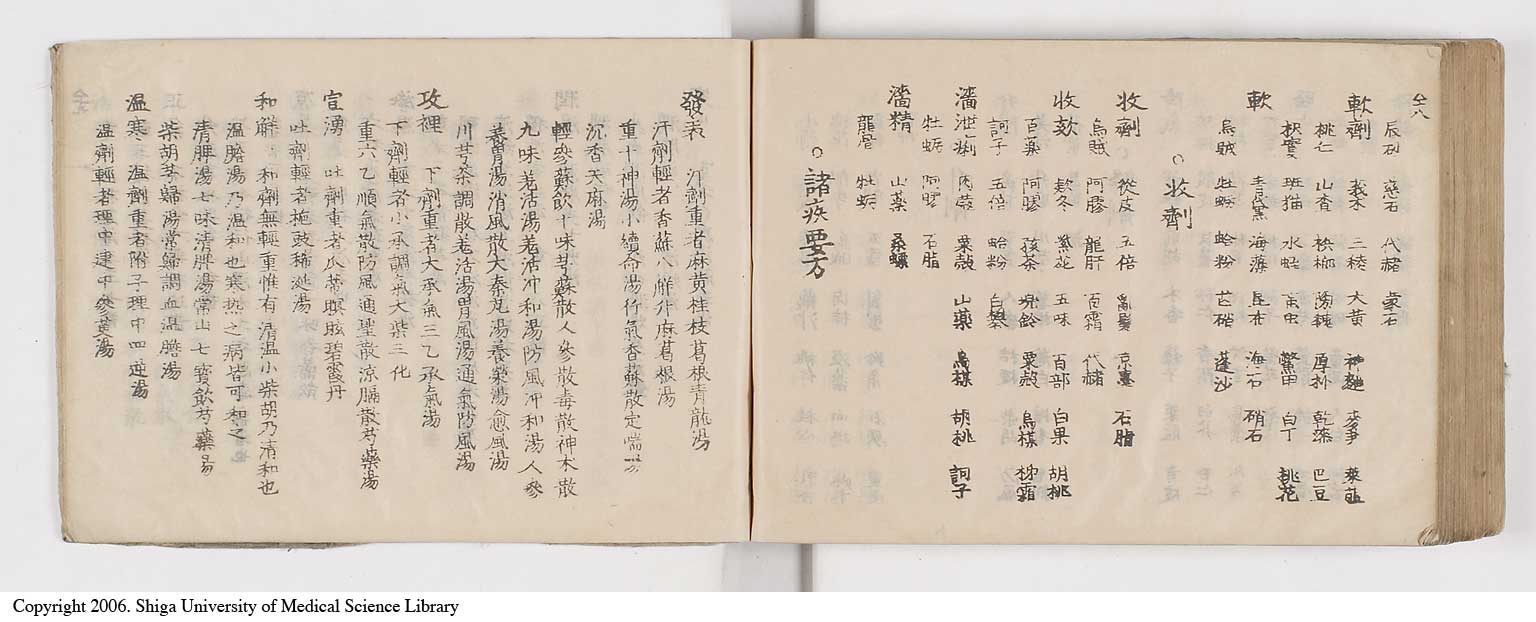 仝八
辰砂 慈石 代赭 蒙石
軟劑
桃仁 莪朮 三稜 大黄 神麯 麥芽 萊菔
枳實 山査 梹榔 陽起 厚朴 乾漆 巴豆
班猫 水蛭 䖟虫 鱉甲 白丁 桃花
軟
青黛 海藻 昆布 海石 硝石
烏賊 牡蛎 蛤粉 芒硝 蓬沙
○收劑
收劑
從皮 五倍 亂髮 京墨 石脂
烏賊 阿膠 龍肝 百霜 代赭
收欬 欵冬 紫花 五味 百部 白果 胡桃
百藥 阿膠 孩茶 兜鈴 粟殻 烏楳 枌霜
訶子 五倍 蛤粉 白礬
濇泄痢 肉蔲 粟殻 山藥 烏楳 胡桃 訶子
牡蛎 阿膠 石脂
濇精 山藥 桑螵
龍骨 牡蛎
○諸疾要方
發表 汗劑重者麻黄桂枝葛根青龍湯
汗劑輕者香蘇八觧升麻葛根湯
重十神湯小續命湯行氣香蘇散定喘湯
沉香天麻湯
輕參蘇飲十味芎蘇散人參散毒散神朮散
九味羌活湯羌活冲和湯防風冲和湯人參
養胃湯消風散大秦艽湯養榮湯愈風湯
川芎茶調散羌活湯胃風湯通氣防風湯
攻裡 下劑重者大承氣三乙承氣湯
下劑輕者小承調氣大柴三化
重六乙順氣散防風通聖散凉膈散芍藥湯
宣湧 吐劑重者瓜蒂瞑眩碧霞丹
吐劑輕者梔豉稀涎湯
和觧 和劑無輕重惟有清温小柴胡乃清和也
温膽湯乃温和也寒热之病皆可和之
清脾湯七味清脾湯常山七寳飲芍藥湯
柴胡芎歸湯常歸調血温膽湯
温寒 温劑重者附子理中四逆湯
温劑輕者理中建中參黄湯